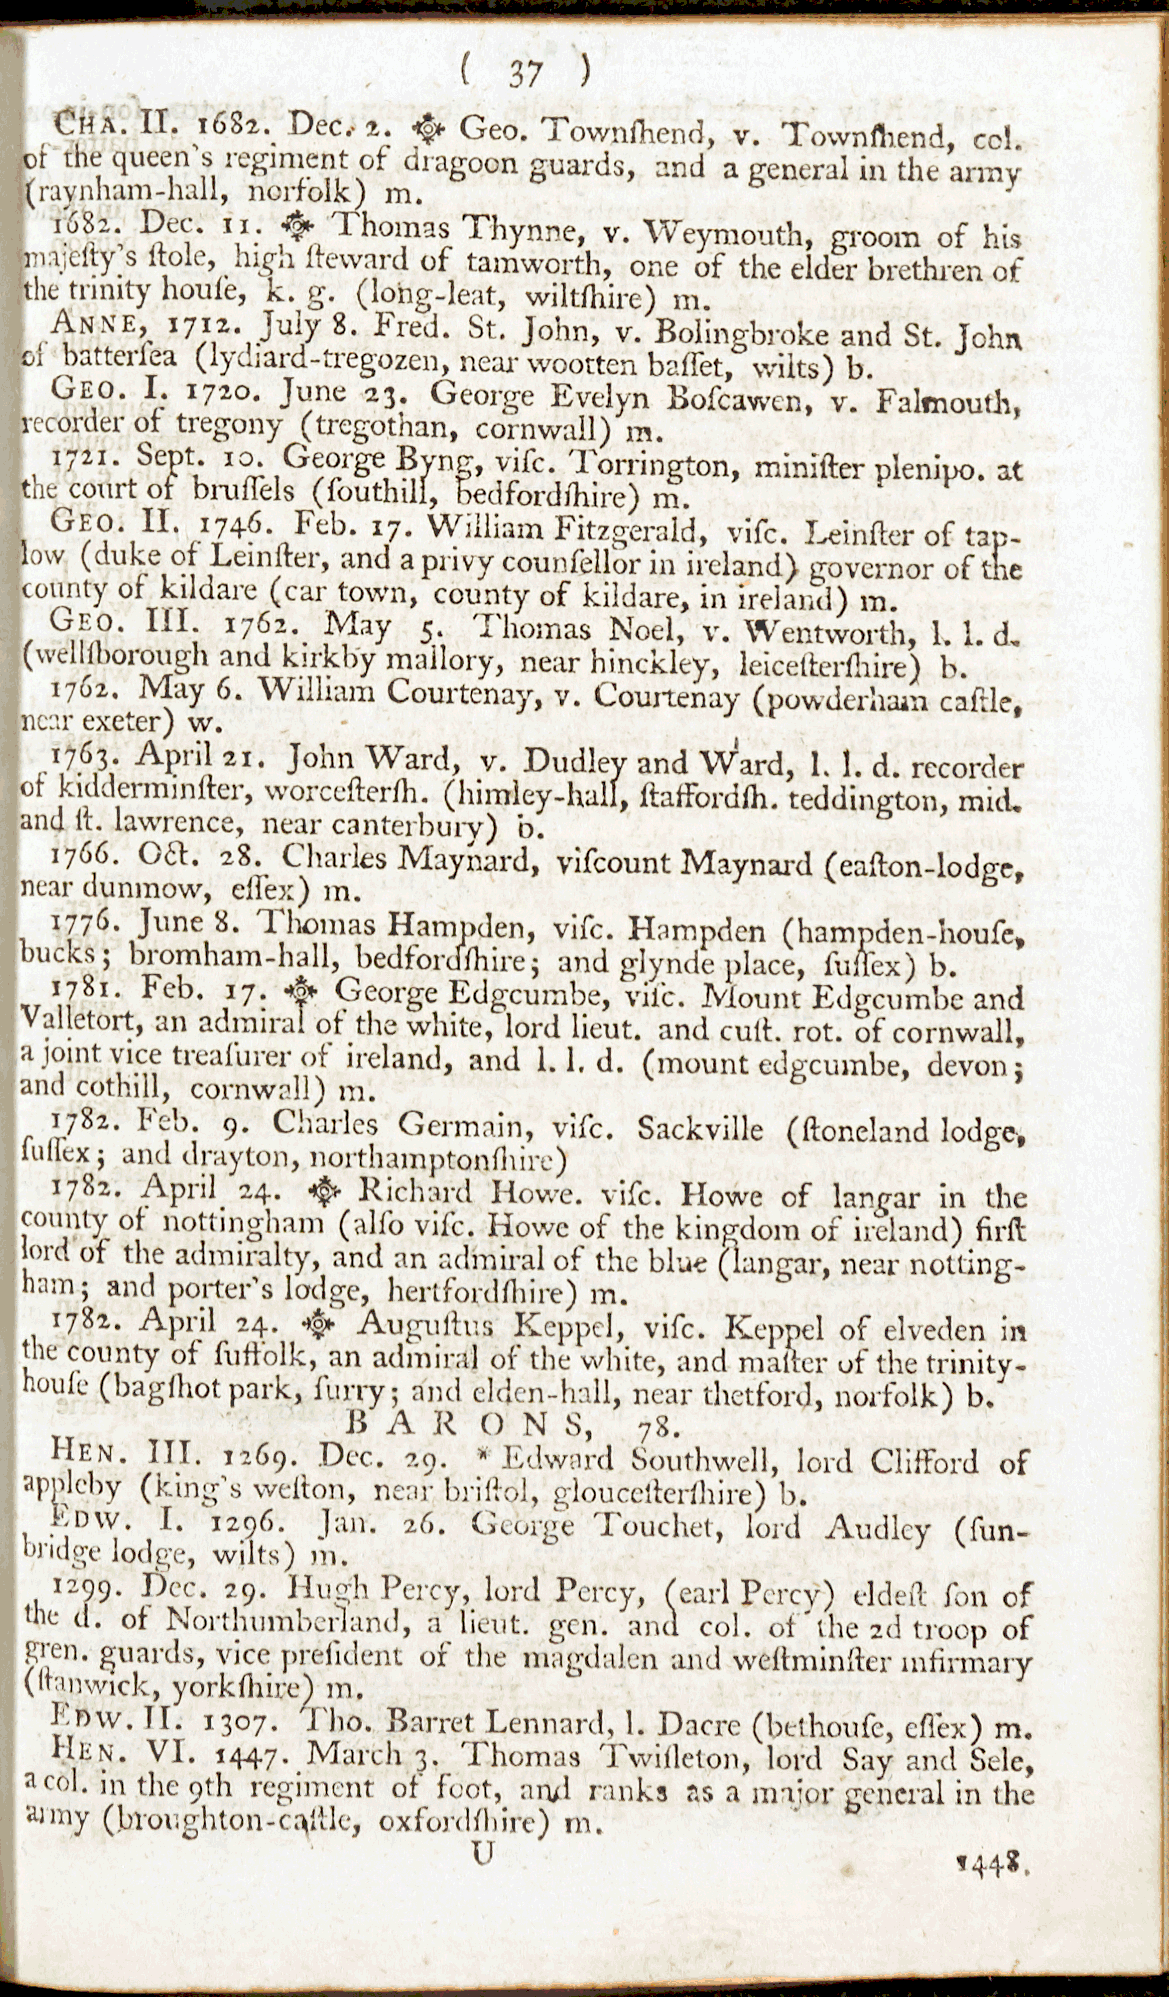 ( 37 )
CHA. II. 1682. Dec. 2. ✠ Geo. Townſhend, v. Townſhend, col.
of the queen's regiment of dragoon guards, and a general in the army
(raynham-hall, norfolk) m.
1682. Dec. 11. ✠ Thomas Thynne, v. Weymouth, groom of his
majeſty's ſtole, high ſteward of tamworth, one of the elder brethren of
the trinity houſe, k. g. (long-leat, wiltſhire) m.
ANNE, 1712. July 8. Fred. St. John, v. Bolingbroke and St. John
of batterſea (lydiard-tregozen, near wootten baſſet, wilts) b.
GEO. I. 1720. June 23. George Evelyn Boſcawen, v. Falmouth,
recorder of tregony (tregothan, cornwall) m.
1721. Sept. 10. George Byng, viſc. Torrington, miniſter plenipo. at
the court of bruſſels (ſouthill, bedfordſhire) m.
GEO. II. 1746. Feb. 17. William Fitzgerald, viſc. Leinſter of tap-
low (duke of Leinſter, and a privy counſellor in ireland) governor of the
county of kildare (car town, county of kildare, in ireland) m.
GEO. III. 1762. May 5. Thomas Noel, v. Wentworth, l. l. d.
(wellſborough and kirkby mallory, near hinckley, leiceſterſhire) b.
1762. May 6. William Courtenay, v. Courtenay (powderham caſtle,
near exeter) w.
1763. April 21. John Ward, v. Dudley and Ward, l. l. d. recorder
of kidderminſter, worceſterſh. (himley-hall, ſtaffordſh. teddington, mid.
and ſt. lawrence, near canterbury) b.
1766. Oct. 28. Charles Maynard, viſcount Maynard (eaſton-lodge,
near dunmow, eſſex) m.
1776. June 8. Thomas Hampden, viſc. Hampden (hampden-houſe,
bucks; bromham-hall, bedfordſhire; and glynde place, ſuſſex) b.
1781. Feb. 17. ✠ George Edgcumbe, viſc. Mount Edgcumbe and
Valletort, an admiral of the white, lord lieut. and cuſt. rot. of cornwall,
a joint vice treaſurer of ireland, and l. l. d. (mount edgcumbe, devon;
and cothill, cornwall) m.
1782. Feb. 9. Charles Germain, viſc. Sackville (ſtoneland lodge,
ſuſſex; and drayton, northamptonſhire)
1782. April 24. ✠ Richard Howe. viſc. Howe of langar in the
county of nottingham (alſo viſc. Howe of the kingdom of ireland) firſt
lord of the admiralty, and an admiral of the blue (langar, near notting-
ham; and porter's lodge, hertfordſhire) m.
1782. April 24. ✠ Auguſtus Keppel, viſc. Keppel of elveden in
the county of ſuffolk, an admiral of the white, and maſter of the trinity-
houſe (bagſhot park, ſurry; and elden-hall, near thetford, norfolk) b.
BARONS, 78.
HEN. III. 1269. Dec. 29. * Edward Southwell, lord Clifford of
appleby (king's weſton, near briſtol, glouceſterſhire) b.
EDW. I. 1296. Jan. 26. George Touchet, lord Audley (ſun-
bridge lodge, wilts) m.
1299. Dec. 29. Hugh Percy, lord Percy, (earl Percy) eldeſt ſon of
the d. of Northumberland, a lieut. gen. and col. of the 2d troop of
gren. guards, vice preſident of the magdalen and weſtminſter infirmary
(ſtanwick, yorkſhire) m.
EDW. II. 1307. Tho. Barret Lennard, l. Dacre (bethouſe, eſſex) m.
HEN. VI. 1447. March 3. Thomas Twiſleton, lord Say and Sele,
a col. in the 9th regiment of foot, and ranks as a major general in the
army (broughton-caſtle, oxfordſhire) m.
U
1448.